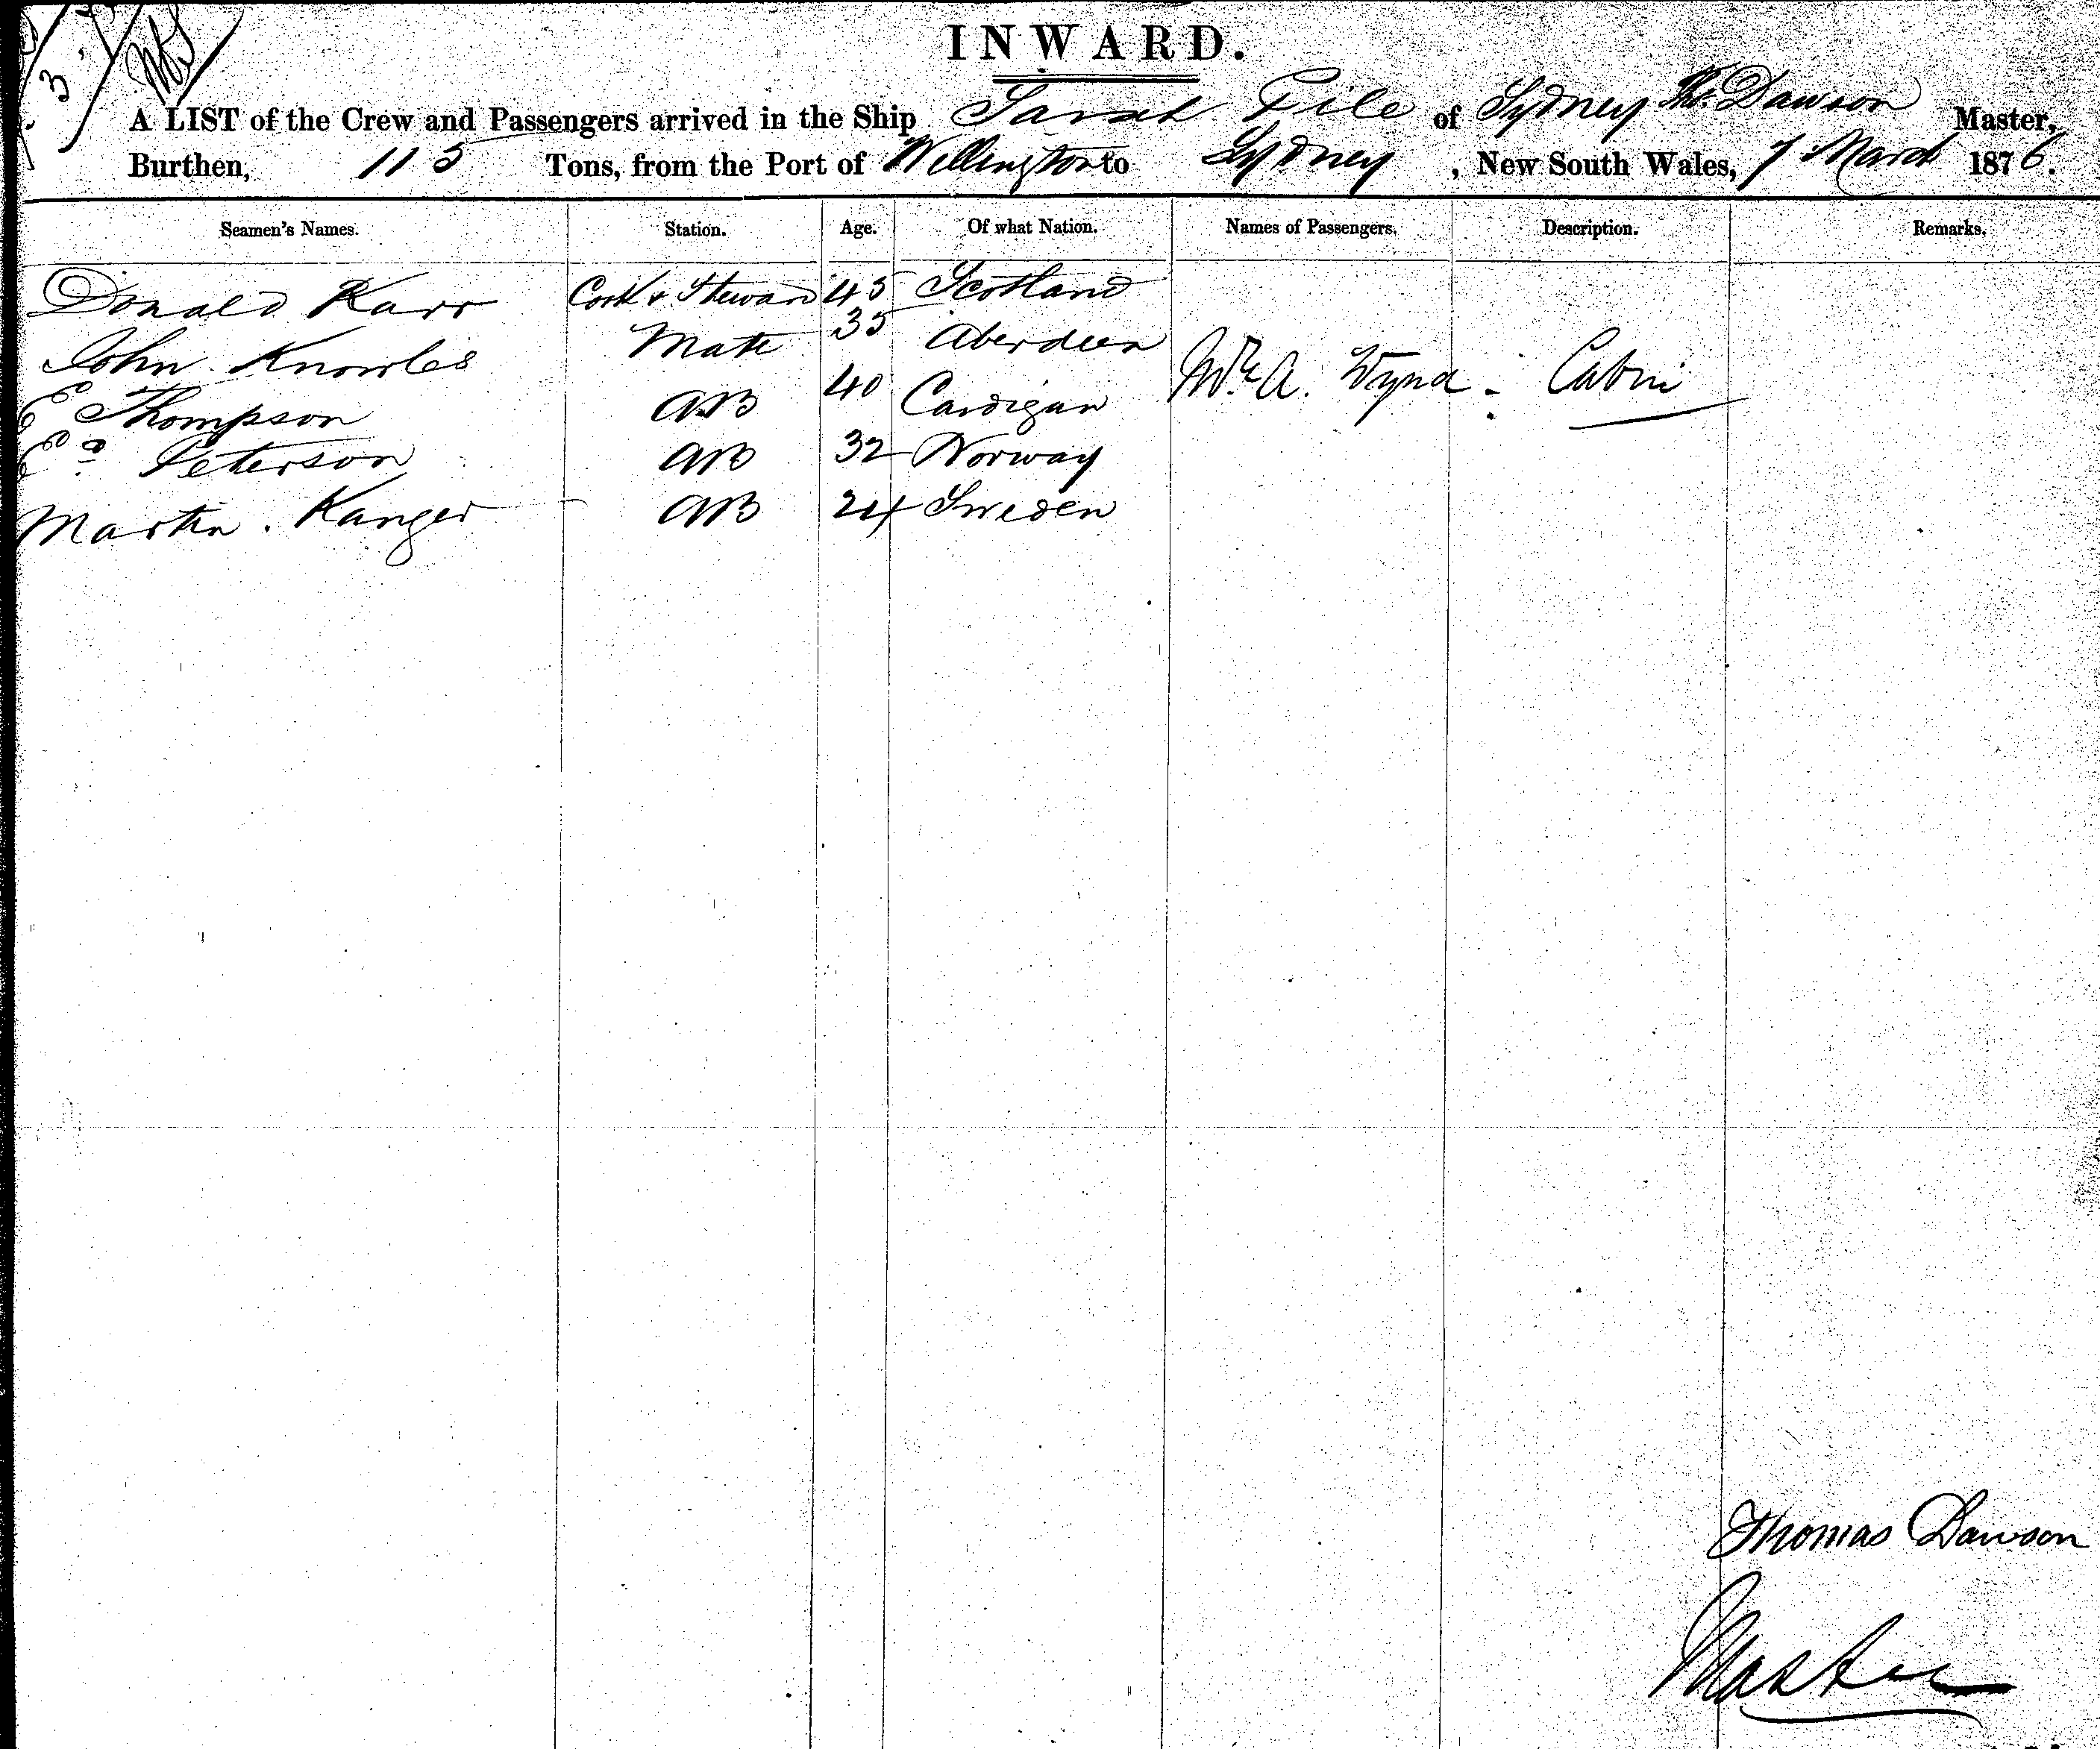 INWARD.
A LIST of the Crew and Passengers arrived in the Ship Sarah Pile of Sydney Thos. Dawson Master,
Burthen, 115 Tons, from the Port of Wellington to Sydney, New South Wales, 7 March 1876.
Seamen's Names. Station. Age. Of what Nation. Names of Passengers. Description. Remarks.
Donald Karr Cook & Steward 45 Scotland
John Knowles Mate 35 Aberdeen
Mr. A. Wynd - Cabin
E Thompson AB 40 Cardigan
Peterson AB 32 Norway
Martin Kanger AB 24 Sweden
Thomas Dawson
Master